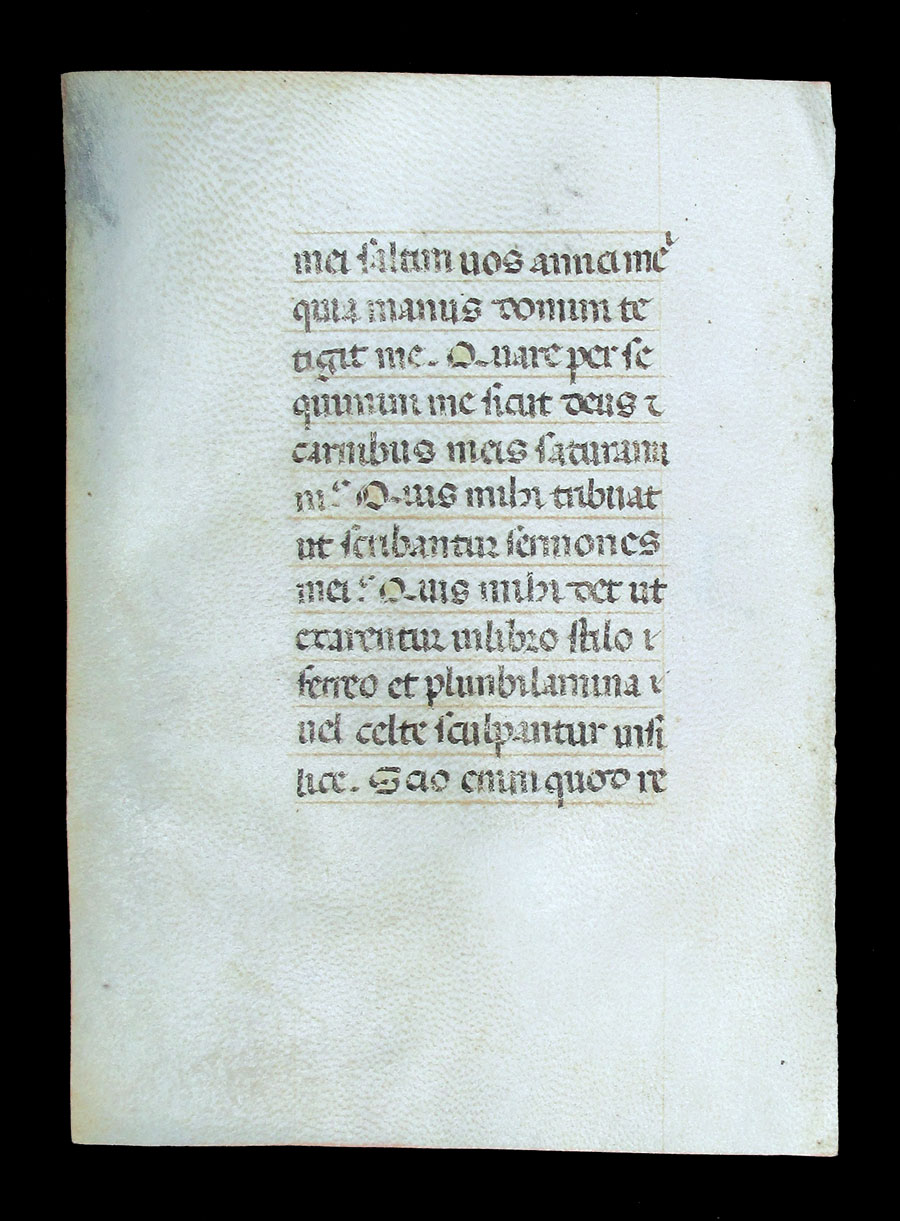 mei saltim uos amici mei
quia manus domini te
tigit me. Quare perse
quimini me sicut deus ⁊
carnibus meis saturami
ni? Quis mihi tribuat
ut scribantur sermones
mei? Quis mihi det ut
exarentur inlibro stilo
ferreo et plunbilamina
uel celte sculpantur insi
lice. Scio enim quod re